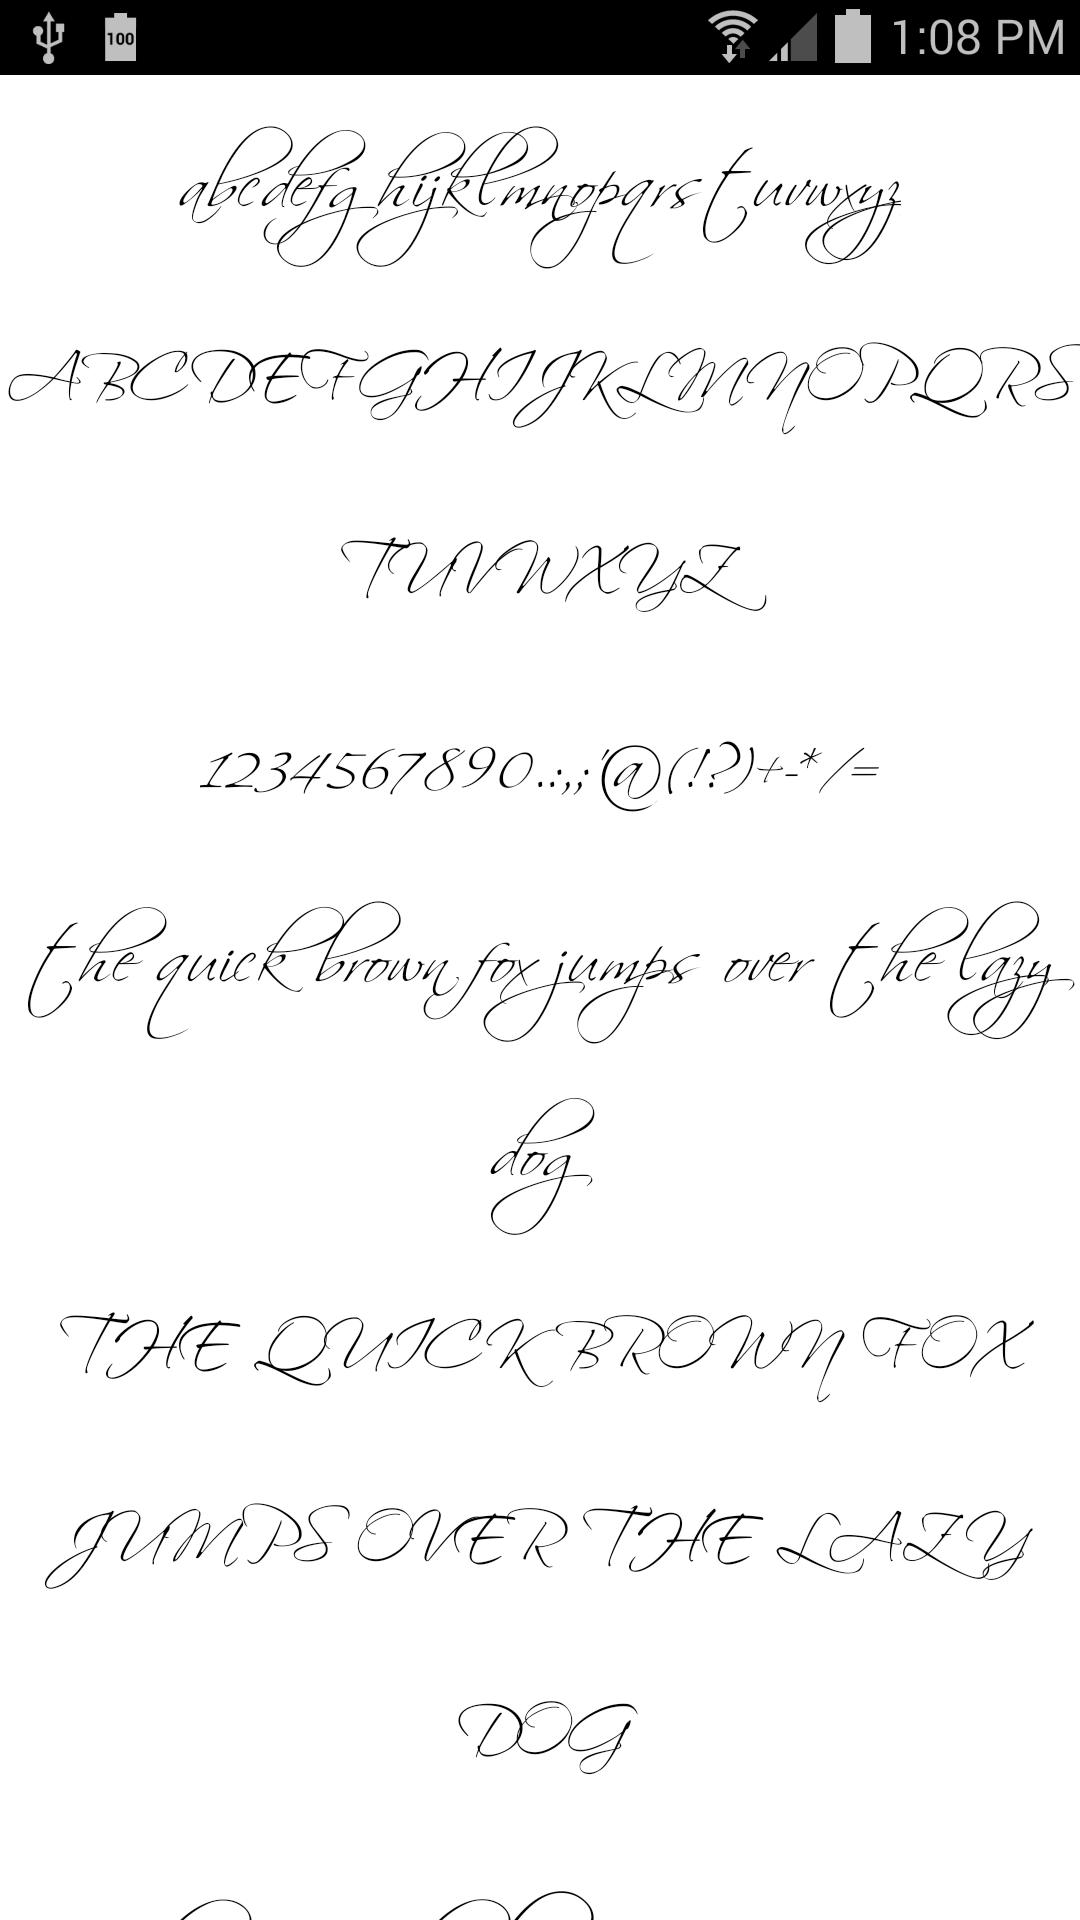 100 1:08 PM
abcdefghijklmnopqrstuvwxyz
ABCDEFGHIJKLMNOPQRS
TUVWXYZ
1234567890.:,;'@(!?)+-*/=
the quick brown fox jumps over the lazy
dog
THE QUICK BROWN FOX
JUMPS OVER THE LAZY
DOG